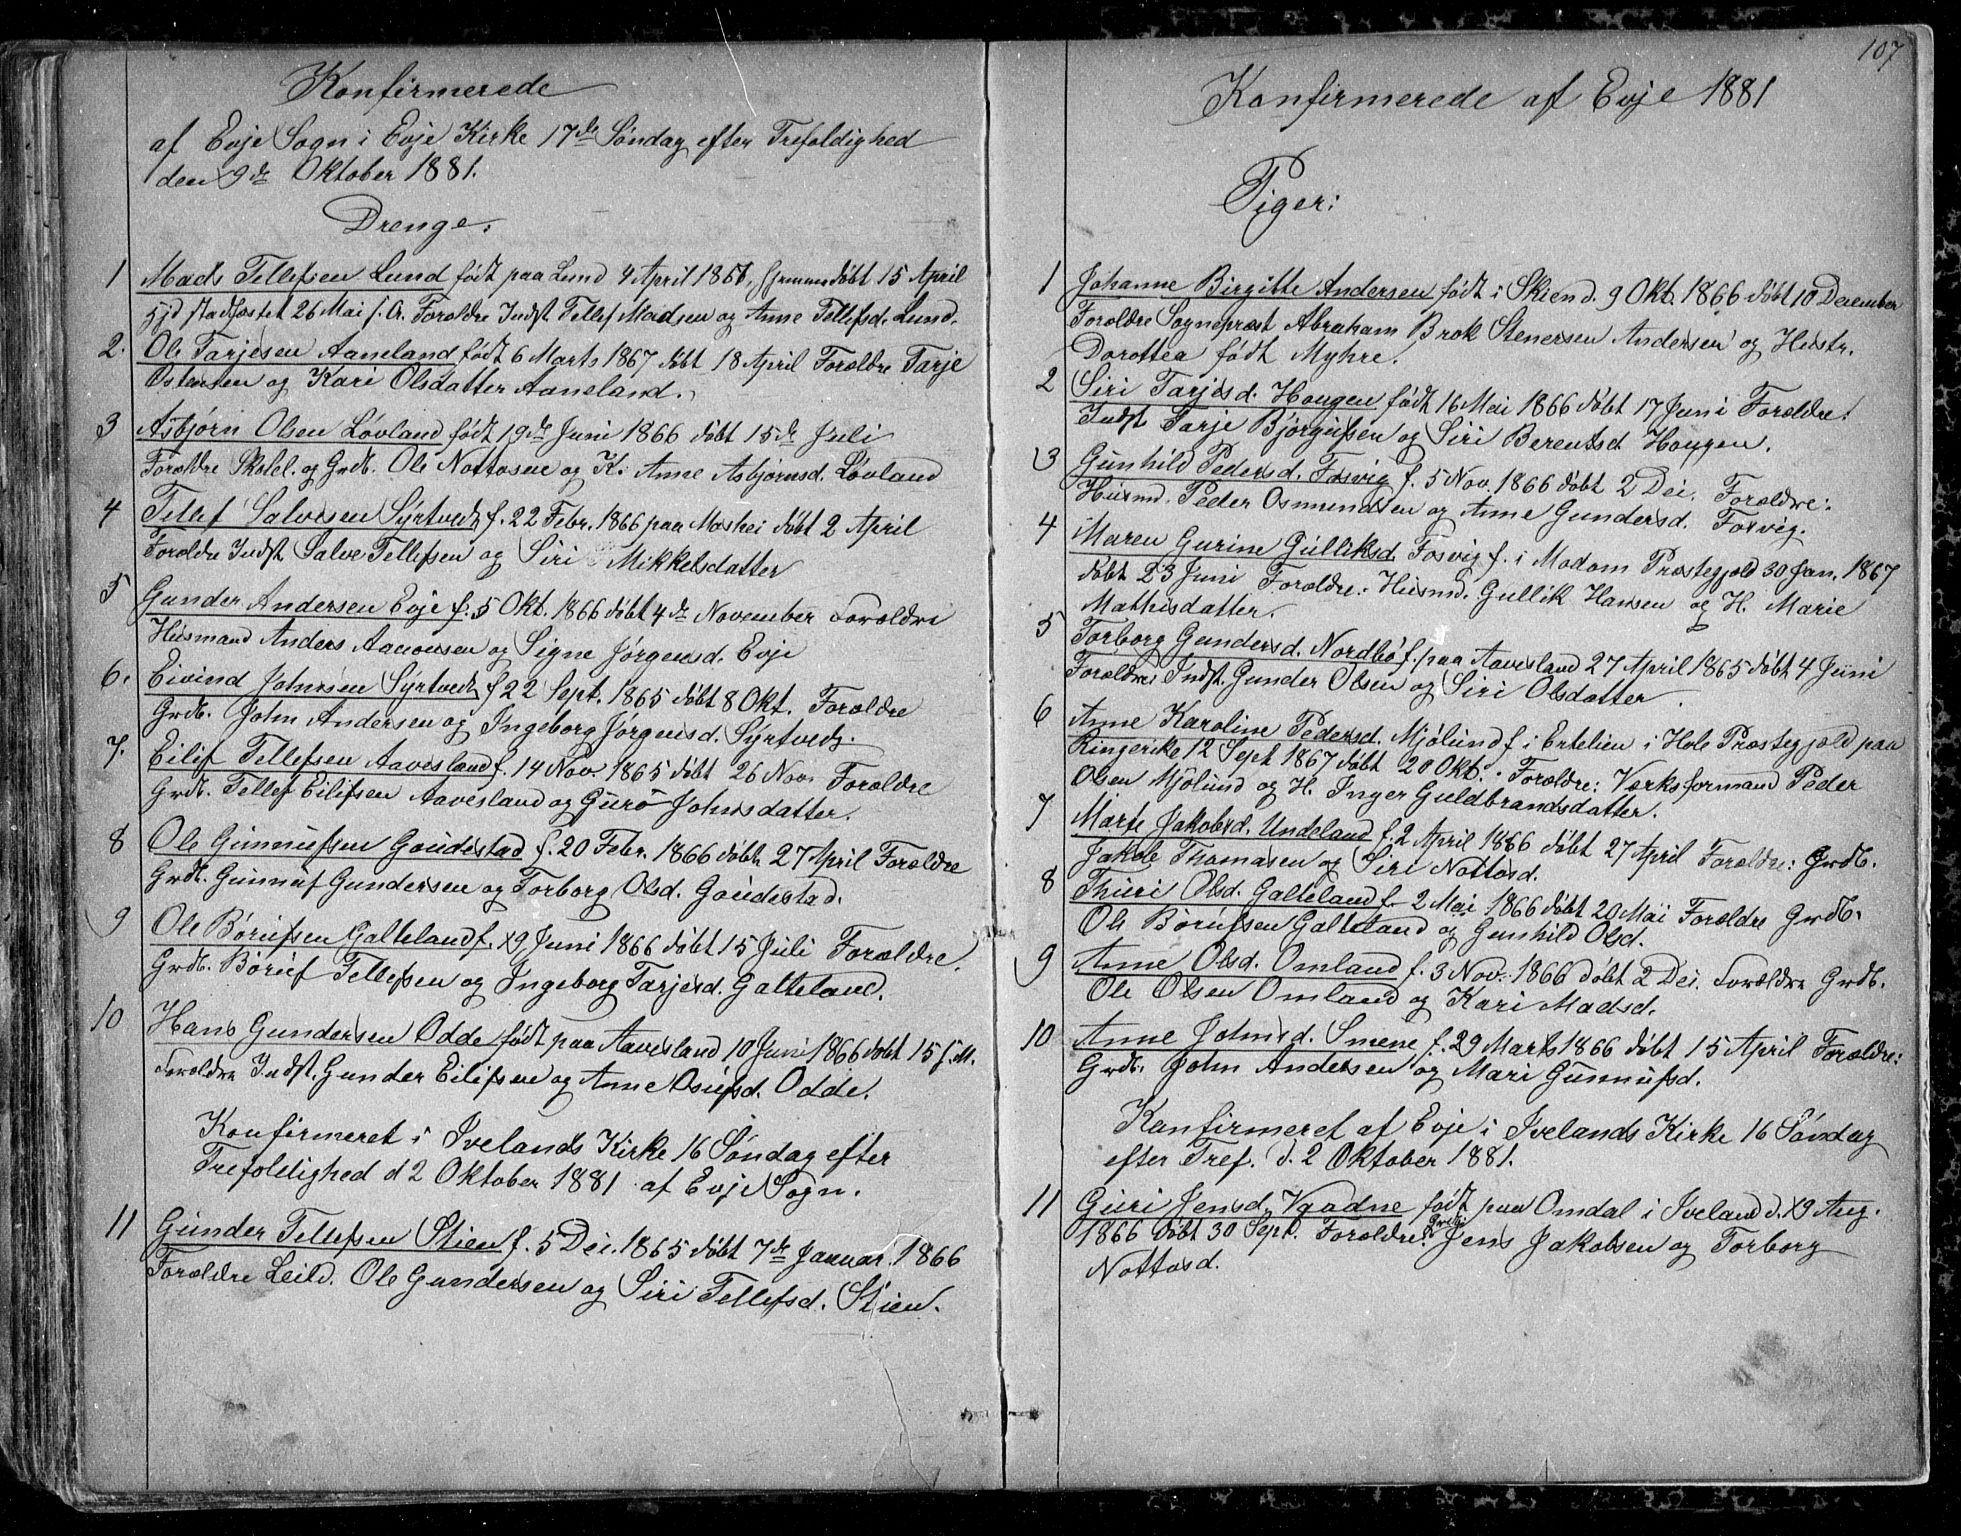 Konfirmerede
af Evje Sogn i Evje Kirke 17de Søndag efter Trefoldighed
den 9de Oktober 1881.
Drenge.
1 Mads Tellefsen Lund født paa Lund 4 April 1866, hjemmedøbt 15 April
stadfæstet 26 Mai s. A. Forældre Indst Tellef Madsen og Anne Tellefsd. Lund.
2. Ole Tarjesen Aaneland født 6 Marts 1867 døbt 18 April Forældre Tarje
Ostensen og Kari Olsdatter Aaneland.
3 Asbjørn Olsen Løvland født 19de Juni 1866 døbt 15de Juli
Forældre Skolel. og Grdb. Ole Nottosen og K. Anne Asbjørnsd. Løvland
4 Tellef Salvesen Syrtveds f. 22 Febr. 1866 paa Moshei døbt 2 April
Forældre Indst Salve Tellefsen og Siri Mikkelsdatter
5 Gunder Andersen Evje f. 5 Okt. 1866 døbt 4de November Forældre
Husmand Anders Aanonsen og Signe Jørgensd. Evje
6. Eivind Johnsen Syrtveds f 22 Sept. 1865 døbt 8 Okt. Forældre
Grdb. John Andersen og Ingeborg Jørgensd. Syrtveds.
7. Eilef Tellefsen Aavesland f. 14 Nov. 1865 døbt 26 Nov. Forældre
Grdb. Tellef Eilifsen Aavesland og Guro Johnsdatter.
8 Ole Gunnufsen Goudestad f. 20 Febr. 1866 døbt 27 April Forældre
Grdb. Gunnuf Gundersen og Torborg Olsd. Goudestad.
9 Ole Børufsen Galteland f. 9 Juni 1866 døbt 15 Juli Forældre.
Grdb. Børuf Tellefsen og Ingeborg Tarjesd. Galteland.
10 Hans Gundersen Odde født paa Aavesland 10 Juni 1866 døbt 15 f. M.
Forældre Indst. Gunder Eilifsen og Anne Osufsd. Odde.
Konfirmeret i Ivelands Kirke 16 Søndag efter
Trefoldighed d 2 Oktober 1881 af Evje Sogn.
11 Gunder Tellefsen Stien f. 5 Dec. 1865 døbt 7de Januar 1866
Forældre Leild. Ole Gundersen og Siri Tellefsd. Stien.
107
Konfirmerede af Evje 1881
Piger:
1 Johanne Birgitte Andersen født i Skien d. 9 Okt. 1866 døbt 10 December
Forældre Sognepræst Abraham Brok Stenersen Andersen og Hustr.
Dorottea født Myhre.
2 Siri Tarjesd. Hougen født 16 Mai 1866 døbt 17 Juni Forældre:
Indst Tarje Bjørgufsen og Siri Berentsd. Hougen.
3 Gunhild Pedersd. Fosvig f. 5 Nov. 1866 døbt 2 Dec. Forældre:
Husmd. Peder Osmundsen og Anne Gundersd. Fosvig.
4 Maren Gurine Gulliksd. Fosvig f. i Modum Præstegjeld 30 Jan. 1867
døbt 23 Juni Forældre: Husmd. Gullik Hansen og H. Marie
Mathisdatter.
5 Torborg Gundersd. Nordbø f. paa Aavesland 27 April 1865 døbt 4 Juni
Forældre: Indst. Gunder Olsen og Siri Olsdatter.
6 Anne Karoline Pedersd. Mjølund f. i Ertelien i Hole Præstegjeld paa
Ringerike 12 Sept 1867 døbt 20 Okt. Forældre: Værksformand Peder
Olsen Mjølund og H. Inger Guldbrandsdatter.
7 Marte Jakobsd. Undeland f. 2 April 1866 døbt 27 April Forældre: Grdb.
Jakob Thomasen og Siri Nottosd.
8 Thuri Olsd. Galteland f. 2 Mai 1866 døbt 20 Mai Forældre Grdb.
Ole Børufsen Galteland og Gunhild Olsd.
9 Anne Olsd. Omland f. 3 Nov. 1866 døbt 2 Dec. Forældre Grdb.
Ole Olsen Omland og Kari Madsd.
10 Anne Johnsd. Smene f. 29 Marts 1866 døbt 15 April Forældre:
Grdb. John Andersen og Mari Gunnufsd.
Konfirmeret af Evje i Ivelands Kirke 16 Søndag
efter Tref. d. 2 Oktober 1881.
11 Guri Jensd. Vaadne født paa Omdal i Iveland d. 9 Aug.
1866 døbt 30 Sept. Forældre: Grdb. Jens Jakobsen og Torborg
Nottosd.